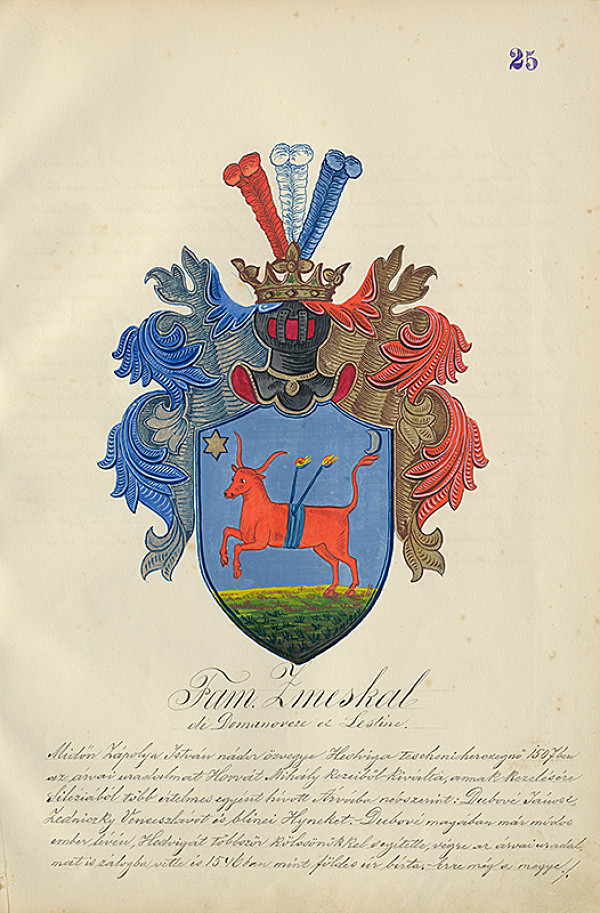 25
Fam. Zmeskal
de Domanovecz et Lestine.
Midőn Zápolya István nádor özvegye Hedviga tescheni herczegnő 1507ben
az árvai uradalmat Horvát Mihály kezéből kiváltá, annak kezelésére
Siléziából több értelmes egyént hivott Árvába névszerint: Dubové Jánost,
Zedniczky Venceszlavot és blinci Hyneket. - Dubové magában már módos
ember lévén, Hedvigát többször kölcsönökkel segitette, végre az árvai uradal
mat is zálogba vette és 1546ban mint földes úr birta. - Erre még a megye ./.